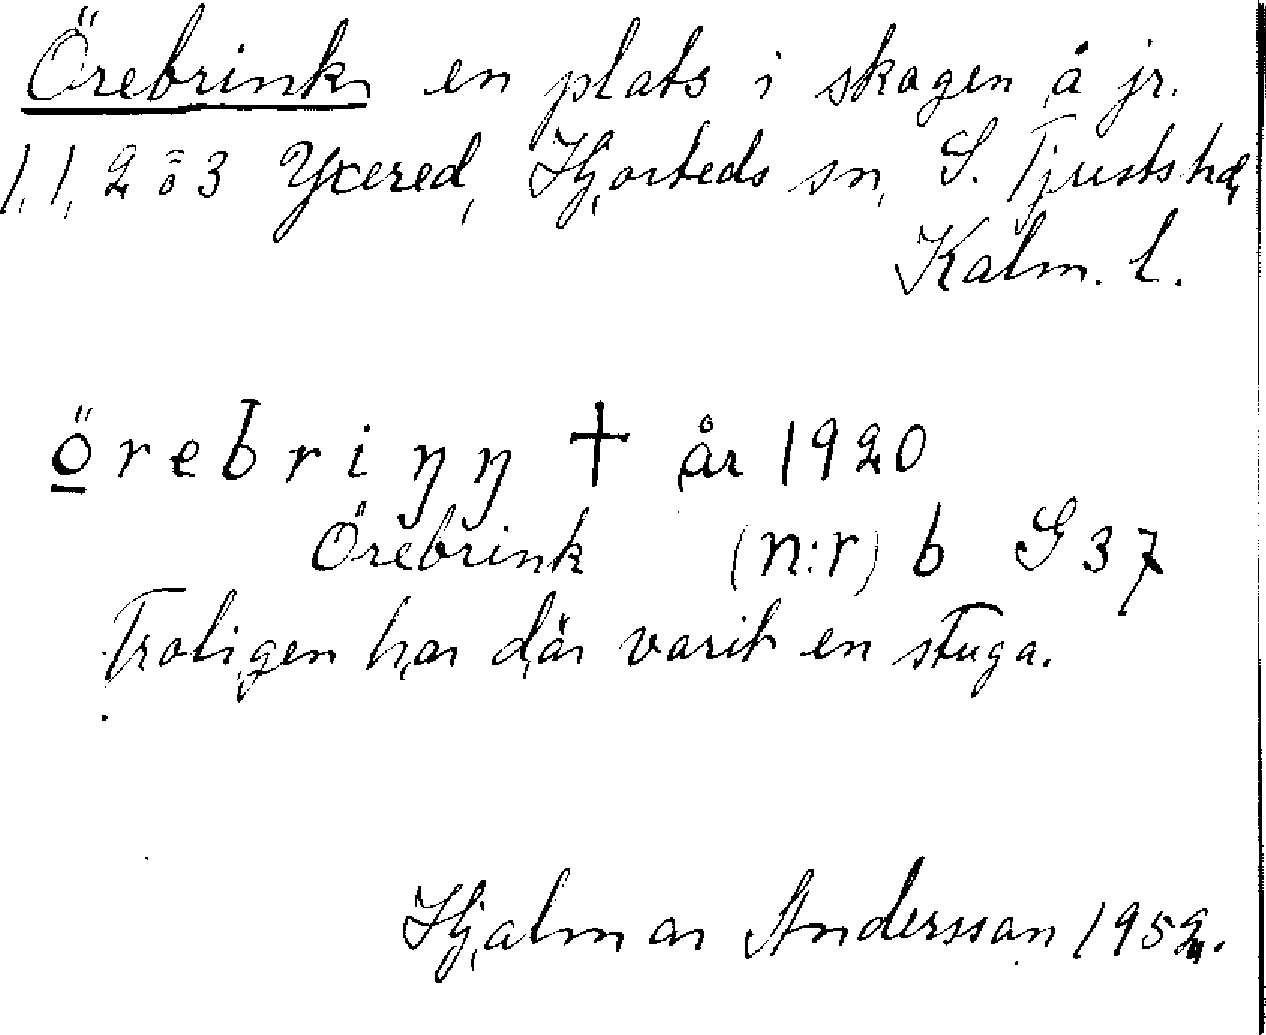 Örebrink en plats i skogen å jr.
1, 1, 2 o 3 Yxered, Hjorteds sn, S. Tjusts hd,
Kalm. l.
örebriŋŋ † år 1920
Örebrink (n:r) b G 37
Troligen har där varit en stuga.
Hjalmar Andersson 1952.